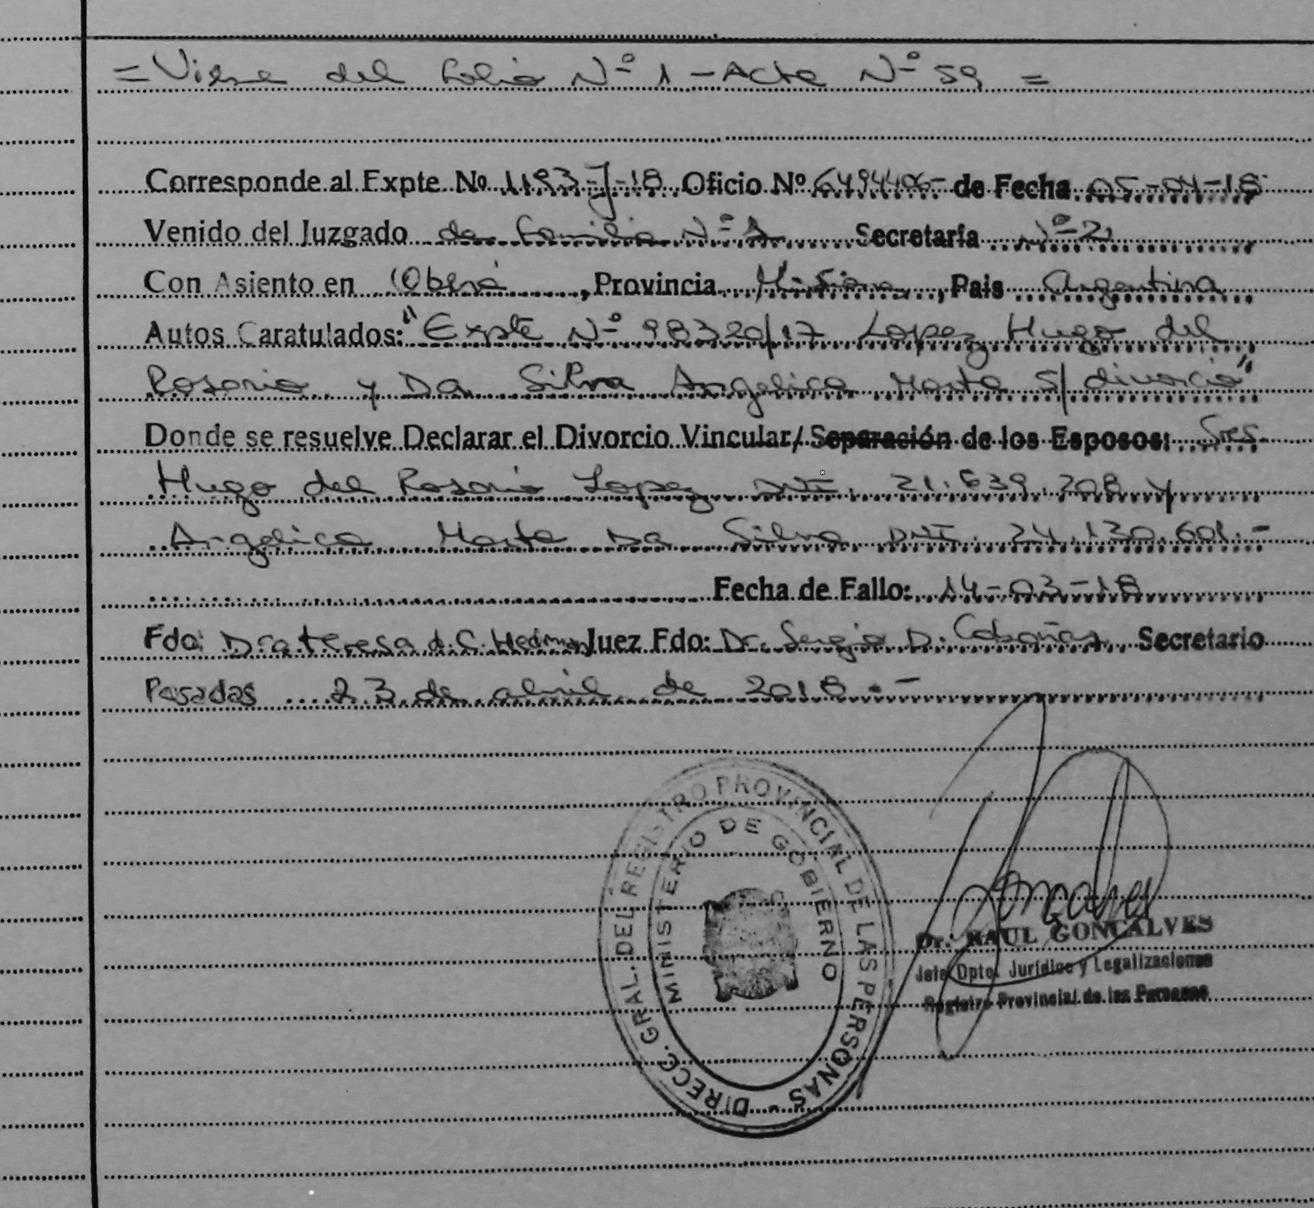 = Viene del folio Nº 1 - Acta Nº 59 =
Corresponde al Expte. Nº 1193-J-18 Oficio Nº de Fecha 05-04-18
Venido del Juzgado de Familia Nº 1 Secretaría Nº 2
Con Asiento en Oberá, Provincia Misiones, Pais Argentina
Autos Caratulados: "Expte Nº 98320/17 Lopez Hugo del
Rosario y Da Silva Angelica Marta S/ divorcio"
Donde se resuelve Declarar el Divorcio Vincular/ Separación de los Esposos: Sres.
Hugo del Rosario Lopez DNI. 21.639.208 y
Angelica Marta Da Silva DNI. 24.130.601.-
Fecha de Fallo: 14-03-18
Fdo: Dra Teresa d. C. Juez Fdo: Dr. Sergio D. Secretario
Posadas 23 de abril de 2018.-
DIRECC. GRAL. DEL REGISTRO PROVINCIAL DE LAS PERSONAS -
MINISTERIO DE GOBIERNO
Dr. RAUL GONCALVES
Jefe Dpto. Jurídico y Legalizaciones
Registro Provincial de las Personas